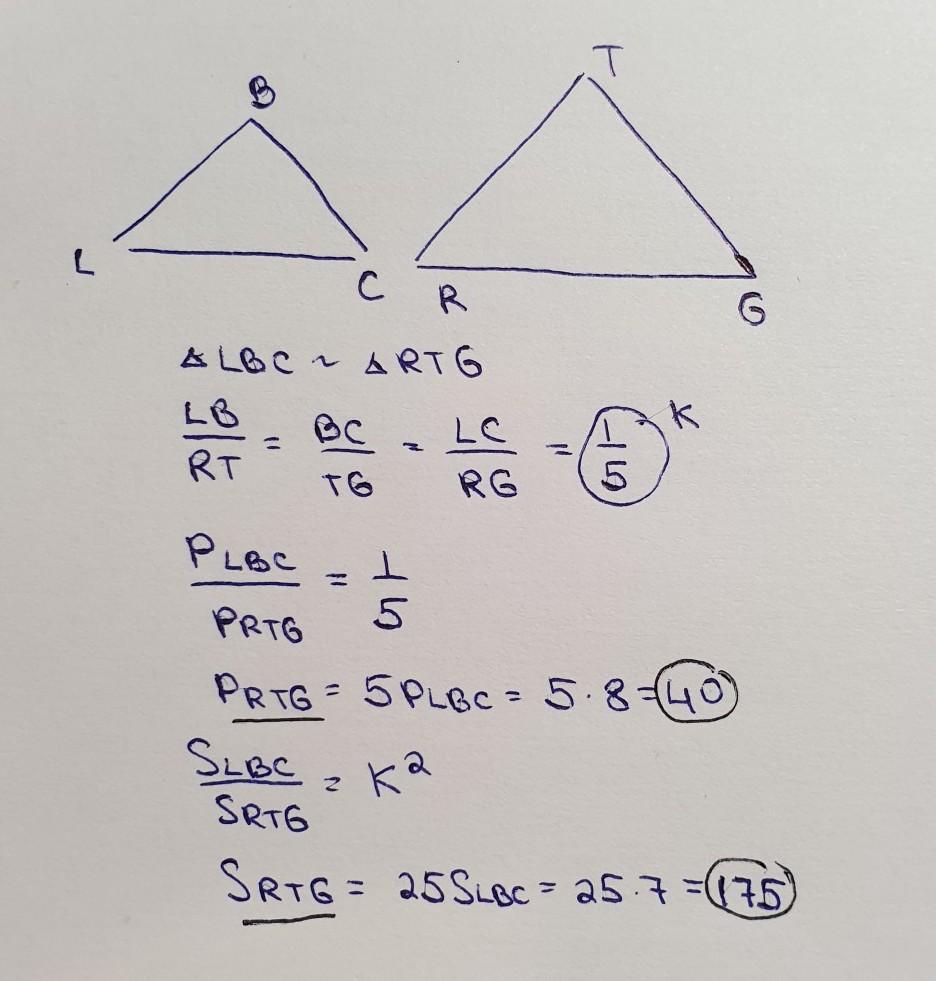 B
T
L
C
R
G
△ LBC ~ △ RTG
LB/RT = BC/TG = LC/RG = 1/5 K
PLBC/PRTG = 1/5
PRTG = 5PLBC = 5·8 = 40
SLBC/SRTG = K²
SRTG = 25SLBC = 25·7 = 175